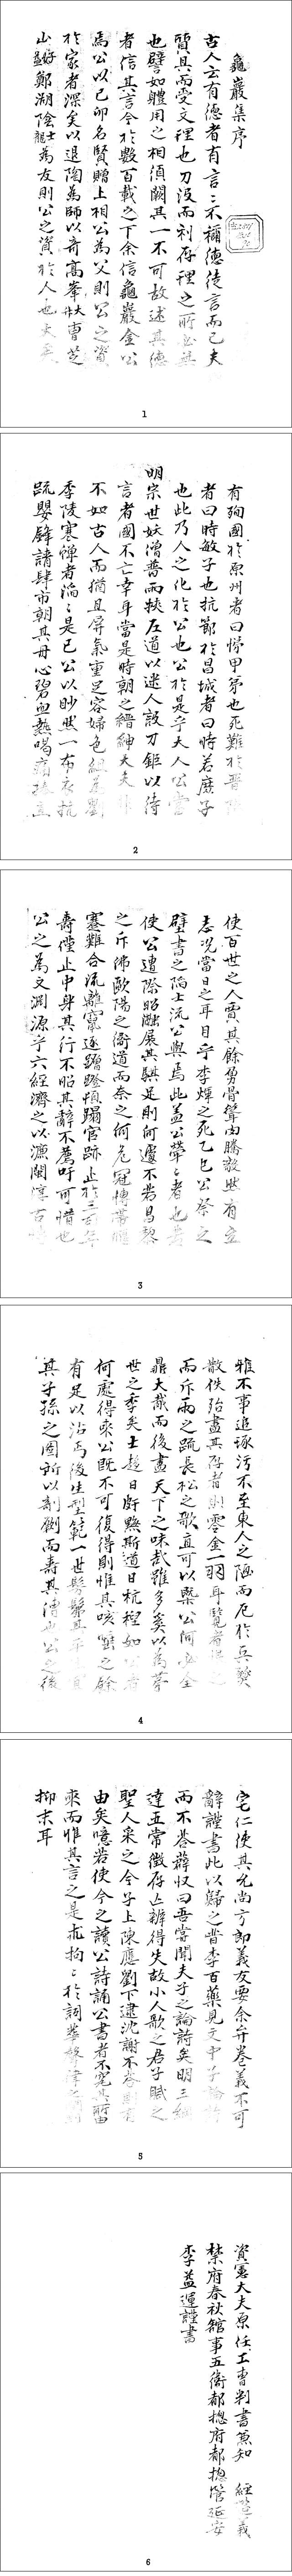 龜巖集序
古人云有德者有言言不稱德徒言而已夫
質具而受文理也刀没而利存理之所必無
也譬如體用之相須闕其一不可故述其德
者信其言今於數百載之下余信龜巖金公
焉公以己卯名賢贈上相公為父則公之資
於家者深矣以退陶為師以奇高峯大升曺芝
山好益鄭湖陰士龍為友則公之資於人也
1
有殉國於原州者曰悌甲弟也死難於晋
者曰時敏子也抗節於昌城者曰時若庶子
也此乃人之化於公也公於是乎大人公當
明宗世妖僧普雨挾左道以迷人設刀鋸以待
言者國不亡幸耳當是時朝之縉紳大夫非
不如古人而猶且屏氣重足容婦色
季陵寒蟬者滔滔是已公以眇然一布衣抗
疏嬰鋒請肆市朝其丹心碧血熱喝
2
使百世之人賈其餘勇骨聳
志况當日之耳目乎李煇之死乙巳公祭之
壁書之陷士流公與焉此盖公犖犖者也
使公遭際昭融展其驥足則何遽不若昌黎
之斥佛歐陽之衞道而奈之何危冠慱帶
蹇難合流離竄逐蹭蹬頓躅官跡止於二
壽僅止中身其行不昭其辭不薦吁可惜也
公之為文淵源乎六經濟之以濂閩
3
雅不事追琢汚不至東人之陋而厄於兵燹
散佚殆盡其存者則零金一羽耳覽者
而斥雨之疏長松之歌直可以槩公何必全
鼎大胾而後盡天下之味哉雖多奚以為
世之季矣士趍日痹黙斯道日杭
何處得來公旣不可復得則惟其咳唾之餘
有足以沾丐後生型範一世
其子孫之圖所以剞劂而壽其傳也公之後
4
宅仁使其
辭謹書此以歸之昔李百藥見文中子論詩
而不荅薛収曰吾嘗聞夫子之論詩矣明三綱
達五常徵存亡辨得失故小人歌之君子賦之
聖人采之今子上陳應劉下述沈謝不荅則有
由矣噫若使今之讀公詩誦公書者不究其所由
來而惟其言之是求拘拘於詞華
抑末耳
5
資憲大夫原任工曺判書兼知 經筵義
禁府春秋館事五衛都摠府都摠管延安
李益運謹書
6